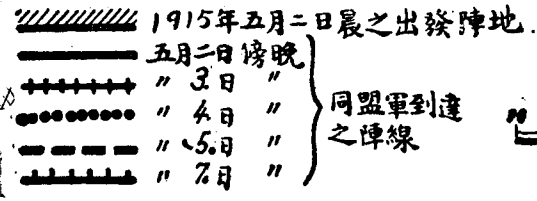 1915年五月二日晨之出發陣地.
五月二日傍晚
〃 3.日 〃
〃 4.日 〃
〃 5.日 〃
〃 7.日 〃
同盟軍到達
之陣線